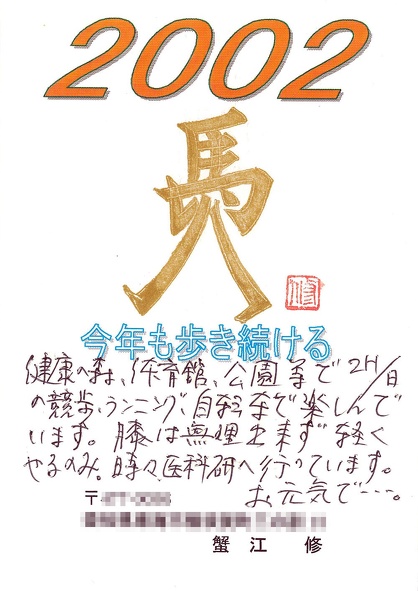 2002
馬
修
今年も歩き続ける
健康の森、体育館、公園等で2H/日
の競歩、ランニング、自転車で楽しんで
います。膝は無理出来ず軽く
やるのみ。時々、医科研へ行っています。
お元気で---。
〒
蟹 江 修